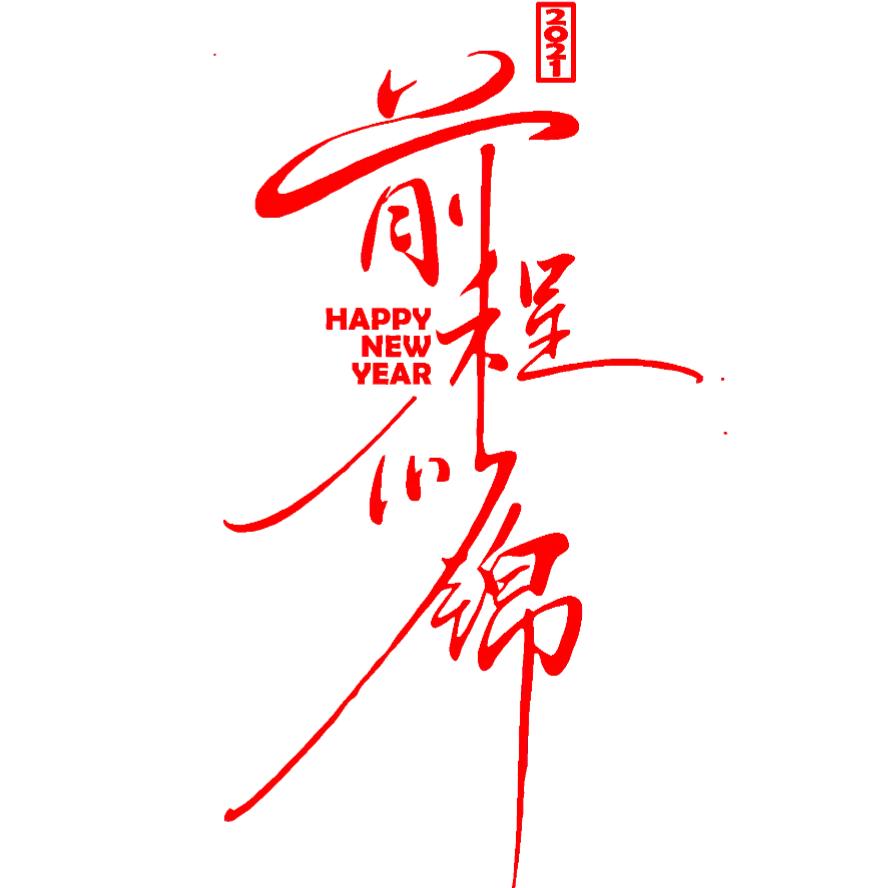 2021
前程
HAPPY
NEW
YEAR
似锦